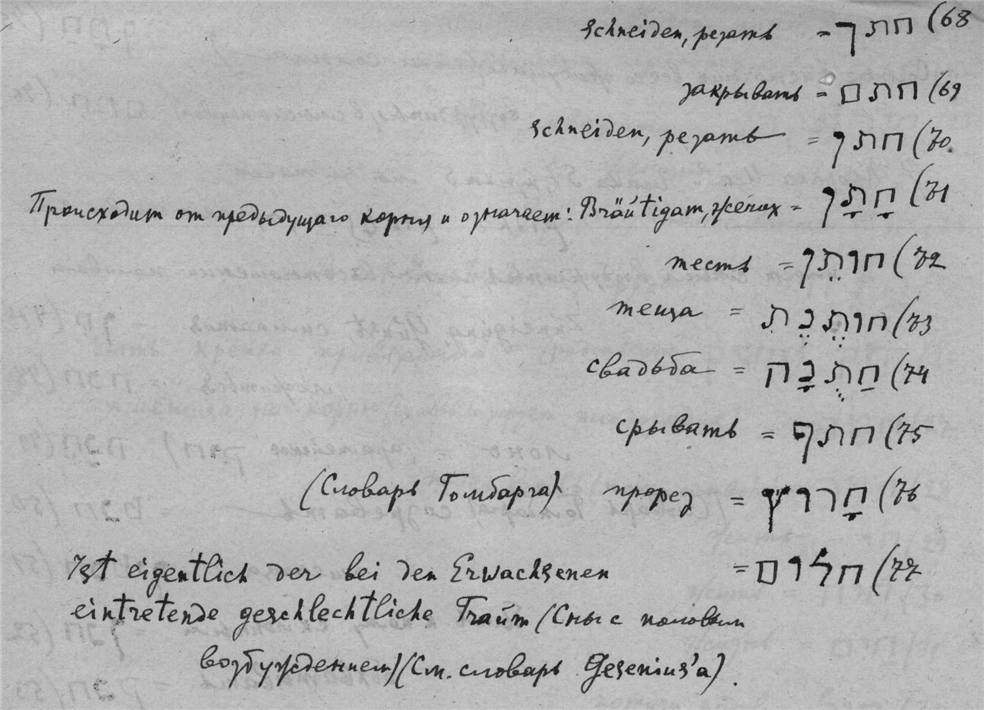 schneiden, резать = חתך (68
закрывать = חתם (69
schneiden, резать = חתך (70
Происходит от предыдущего корня и означает: Bräutigam, жених = חָתָן (71
тесть = חוֹתֵן (72
теща = חוֹתֶנֶת (73
свадьба = חַתֻנָּה (74
срывать = חתף (75
(Словарь Томбарга) прорез = חָרוּץ (76
Ist eigentlich der bei den Erwachsenen = חלום (77
eintretende geschlechtliche Traum (Сны с половым
возбуждением) (См. словарь Gesenius'a).